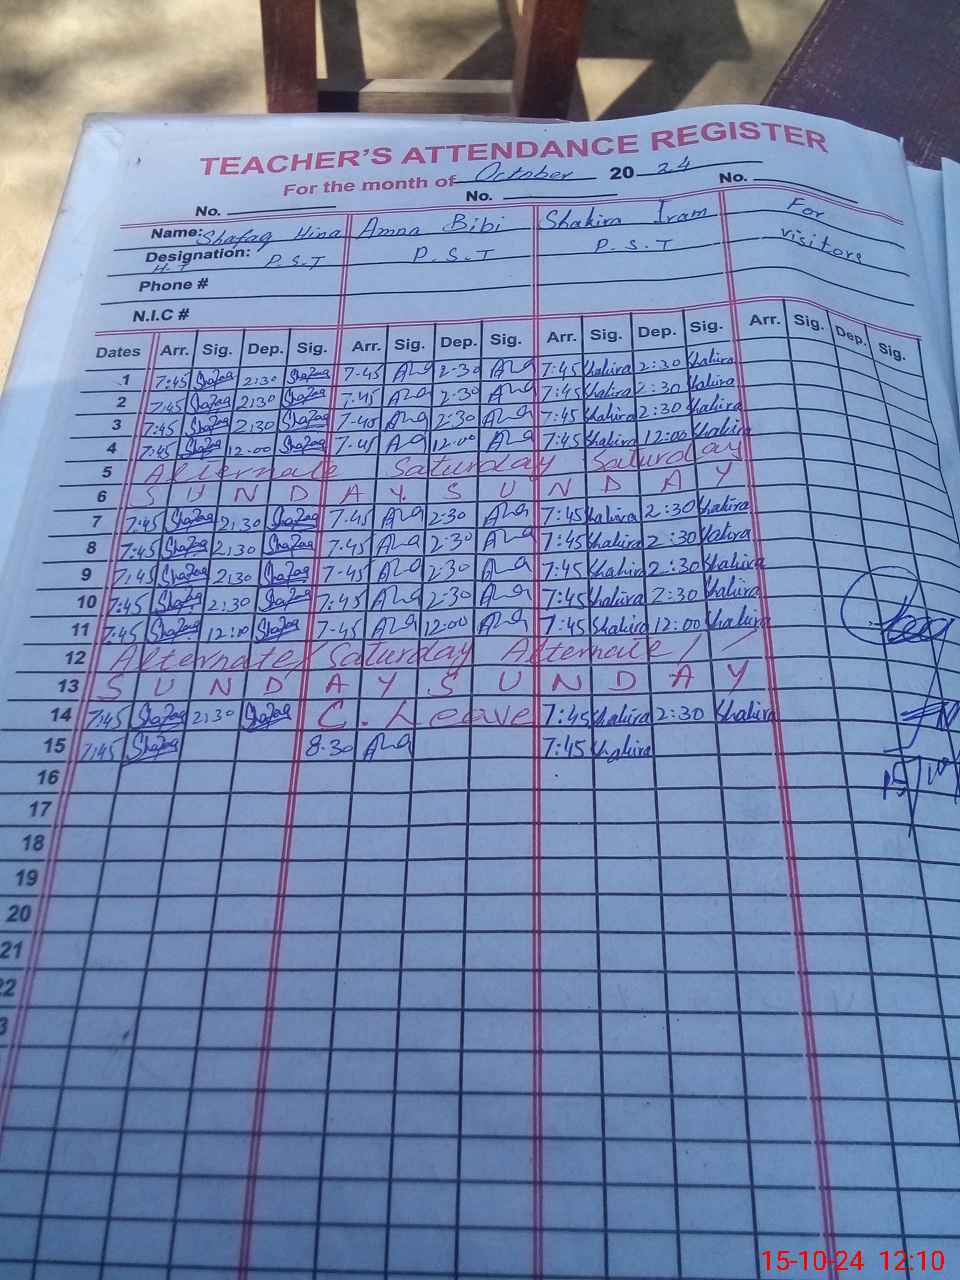 TEACHER'S ATTENDANCE REGISTER
For the month of October 2024
No. No. No.
Name: Shafaq Hina Amna Bibi Shakira Iram For
Designation: P.S.T P.S.T P.S.T visitors
H.T
Phone #
N.I.C #
Dates Arr. Sig. Dep. Sig. Arr. Sig. Dep. Sig. Arr. Sig. Dep. Sig. Arr. Sig. Dep. Sig.
1 7:45 Shafaq 2:30 Shafaq 7-45 2-30 7:45 Shakira 2:30 Shakira
2 7:45 Shafaq 2:30 Shafaq 7.45 2-30 7:45 Shakira 2:30 Shakira
3 7:45 Shafaq 2:30 Shafaq 7-40 2-30 7:45 Shakira 2:30 Shakira
4 7:45 Shafaq 12:00 Shafaq 7-45 12.00 7:45 Shakira 12:00 Shakira
5 Alternate Saturday Saturday
6 S U N D A Y S U N D A Y
7 7:45 Shafaq 2:30 Shafaq 7-45 2-30 7:45 Shakira 2:30 Shakira
8 7:45 Shafaq 2:30 Shafaq 7-45 2-30 7:45 Shakira 2:30 Shakira
9 7:45 Shafaq 2:30 Shafaq 7-45 2-30 7:45 Shakira 2:30 Shakira
10 7:45 Shafaq 2:30 Shafaq 7-45 2-30 7:45 Shakira 2:30 Shakira
11 7:45 Shafaq 12:00 Shafaq 7-45 12:00 7:45 Shakira 12:00 Shakira
12 Alternate Saturday Alternate
13 S U N D A Y S U N D A Y
14 7:45 Shafaq 2:30 Shafaq C. Leave 7:45 Shakira 2:30 Shakira
15 7:45 Shafaq 8.30 7:45 Shakira
16
17
18
19
20
21
22
3
15-10-24 12:10